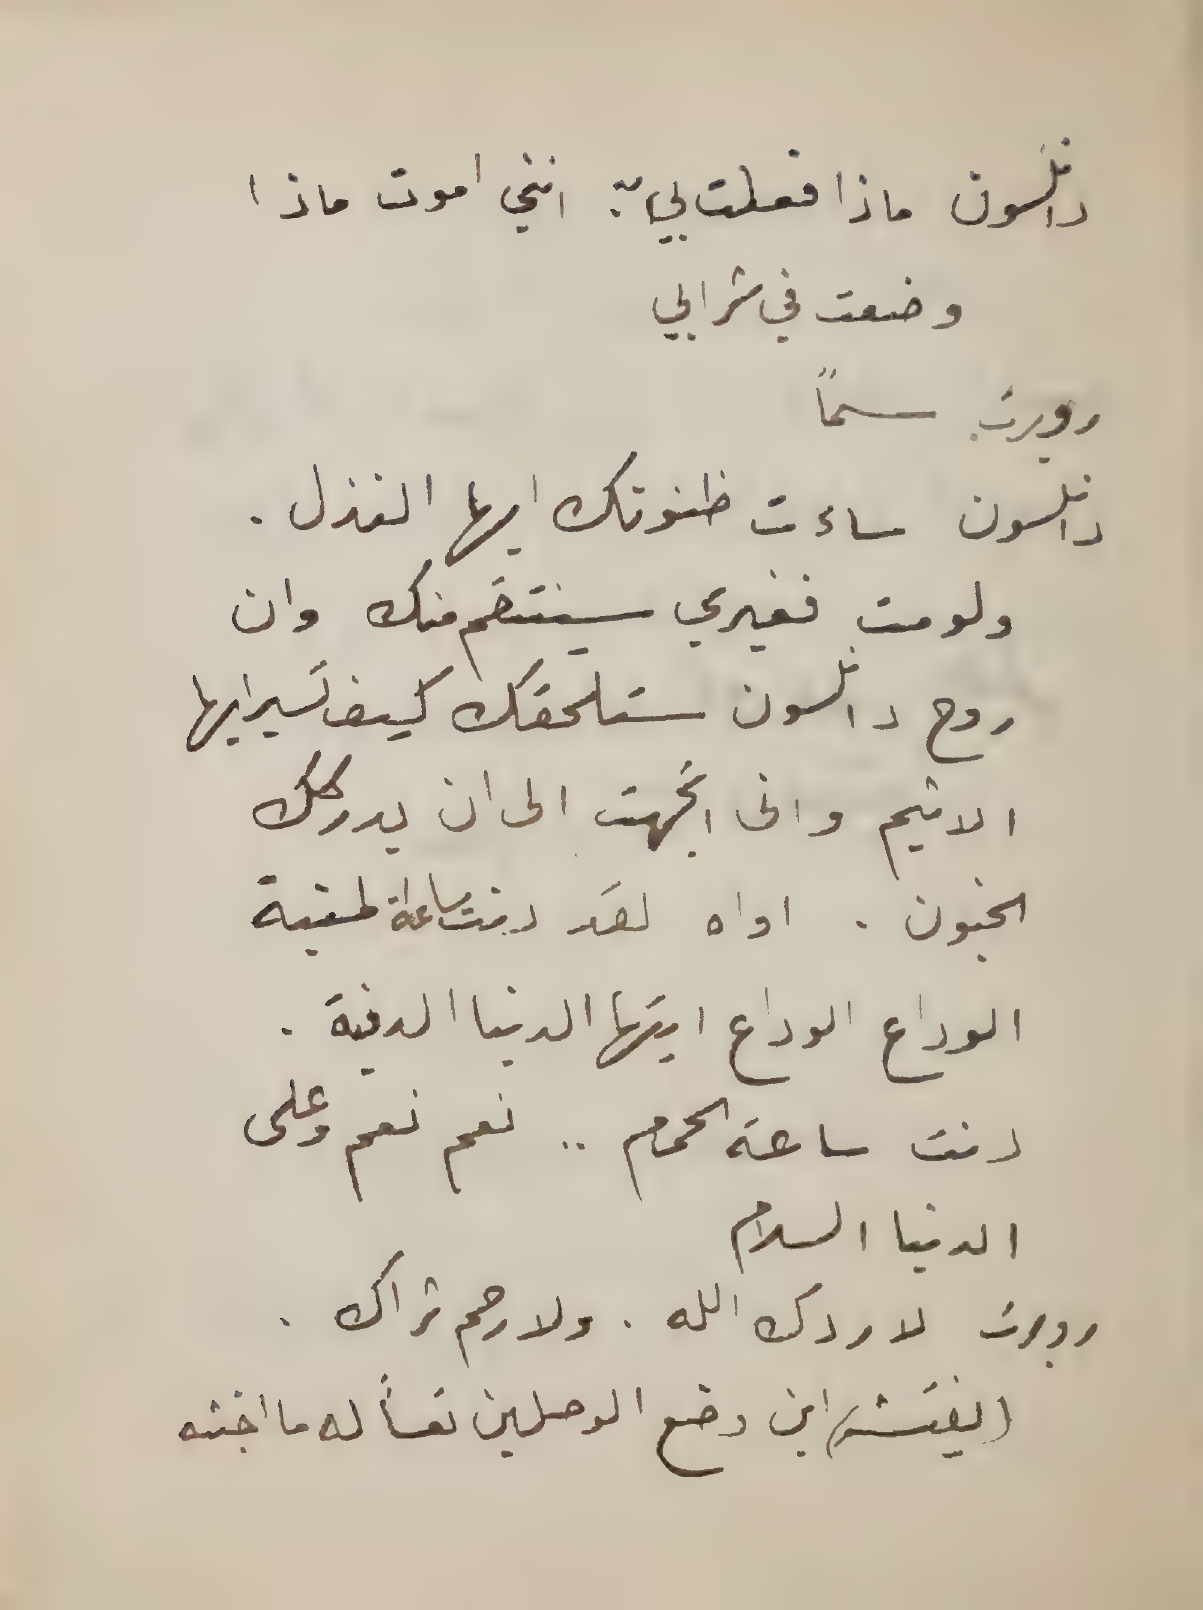 دانلسون ماذا فعلت بي؟ انني اموت ماذا
وضعت في شرابي
روبرت سماً
دانلسون ساءت ظنونك ايها النذل .
ولو مت فغيري سينتقم منك وان
روح دانلسون ستلحقك كيف تسير ايها
الاثيم وانى اتجهت الى ان يدركك
الجنون . اواه لقد دنت ساعة المنية
الوداع الوداع ايتها الدنيا الدنية .
دنت ساعة الحمام .. نعم نعم وعلى
الدنيا السلام
روبرت لا ردك الله . ولا رحم ثراك .
(يفتش) اين وضع الوصلين تعساً له ما اخبثه